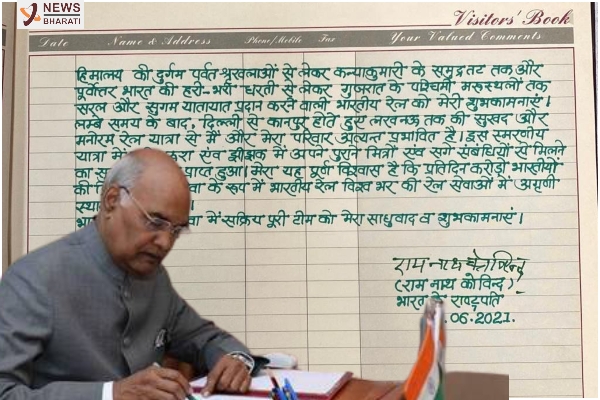 NEWS
BHARATI
Visitors' Book
Date Name & Address Phone/Mobile Fax Your Valued Comments
हिमालय की दुर्गम पूर्वत-श्रृंखलाओं से लेकर कन्याकुमारी के समुद्रतट तक और
पूर्वोत्तर भारत की हरी-भरी धरती से लेकर गुजरात के पश्चिमी मरुस्थलों तक
सरल और सुगम यातायात प्रदान करने वाली भारतीय रेल को मेरी शुभकामनाएं।
लम्बे समय के बाद, दिल्ली से कानपुर होते हुए लखनऊ तक की सुखद और
मनोरम रेल यात्रा से मैं और मेरा परिवार अत्यन्त प्रभावित है। इस स्मरणीय
यात्रा में एंव झींझक में अपने पुराने मित्रों एंव सगे संबंधियों से मिलने
का हुआ। मेरा यह पूर्ण विश्वास है कि प्रतिदिन करोड़ों भारतीयों
की के रूप में भारतीय रेल विश्व भर की रेल सेवाओं में अग्रणी
में सक्रिय पूरी टीम को मेरा साधुवाद व शुभकामनाएं।
राम नाथ कोविन्द
(राम नाथ कोविन्द)
भारत के राष्ट्रपति
.06.2021.